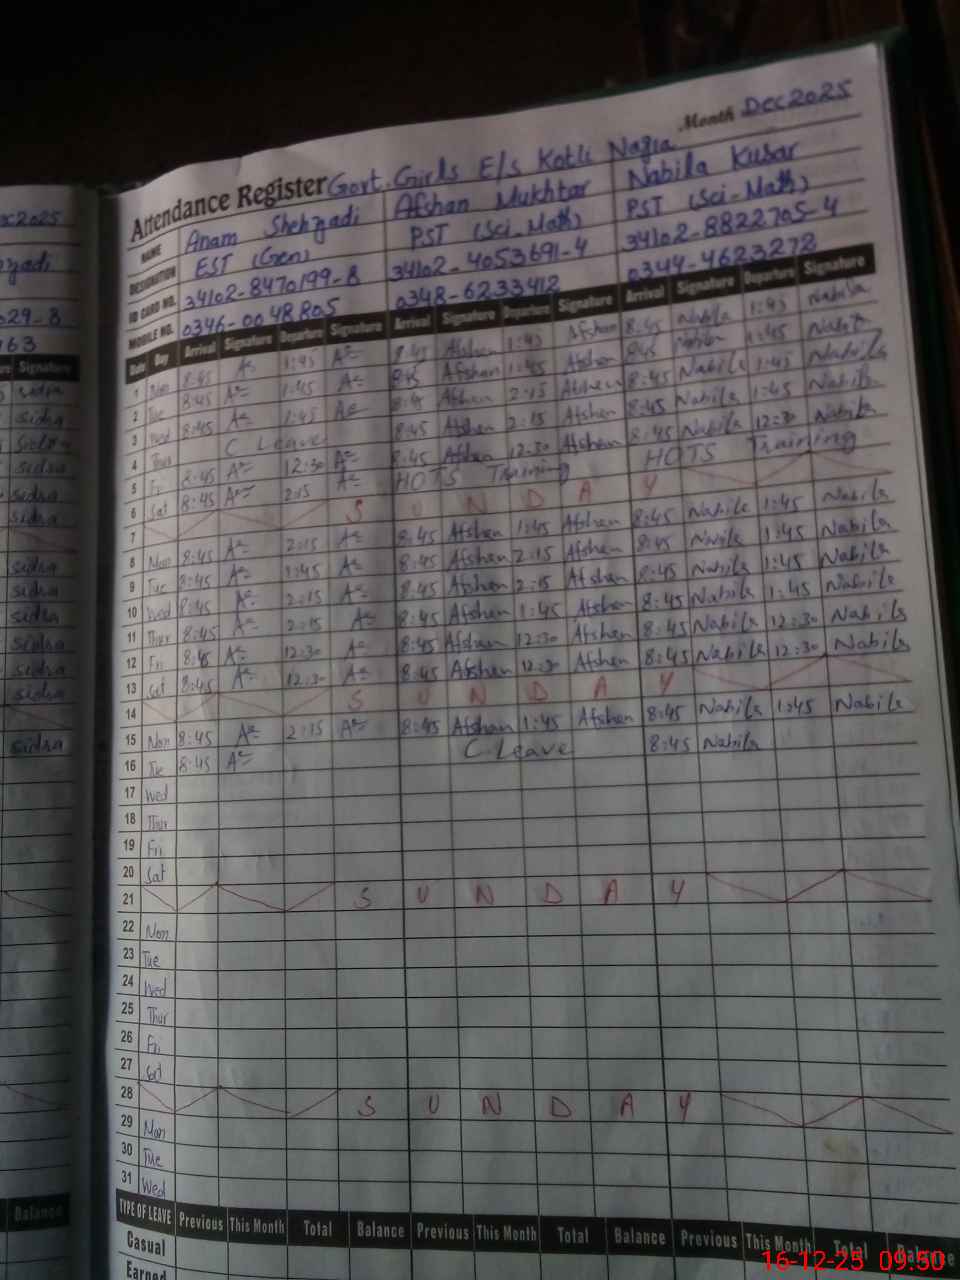 Dec2025
Month Dec2025
Attendance Register Govt. Girls E/s Kotli Nagra
NAME Anam Shehzadi Afshan Mukhtar Nabila Kusar
DESIGNATION EST (Gen) PST (Sci-Math) PST (Sci-Math)
ID CARD NO. 34102-8470199-8 34102-4053691-4 34102-8822705-4
MOBILE NO. 0346-0048805 0348-6233412 0344-4623272
Date Day Arrival Signature Departure Signature Arrival Signature Departure Signature Arrival Signature Departure Signature
1 Mon 8:45 1:45 8:45 Afshan 1:45 Afshan 8:45 Nabila 1:45 Nabila
2 Tue 8:45 1:45 8:45 Afshan 1:45 Afshan 8:45 Nabila 1:45 Nabila
3 Wed 8:45 1:45 Afshan 2:15 Afshan 8:45 Nabila 1:45 Nabila
4 Thur C Leave 8:45 Afshan 2:15 Afshan 8:45 Nabila 1:45 Nabila
5 Fri 8:45 12:30 8:45 Afshan 12:30 Afshan 8:45 Nabila 12:30 Nabila
6 Sat 8:45 2:15 HOTS Training HOTS Training
7 S U N D A Y
8 Mon 8:45 2:15 8:45 Afshan 1:45 Afshan 8:45 Nabila 1:45 Nabila
9 Tue 8:45 1:45 8:45 Afshan 2:15 Afshan 8:45 Nabila 1:45 Nabila
10 Wed 8:45 2:15 8:45 Afshan 2:15 Afshan 8:45 Nabila 1:45 Nabila
11 Thur 8:45 2:15 8:45 Afshan 1:45 Afshan 8:45 Nabila 1:45 Nabila
12 Fri 8:45 12:30 8:45 Afshan 12:30 Afshan 8:45 Nabila 12:30 Nabila
13 Sat 8:45 12:30 8:45 Afshan 12:30 Afshan 8:45 Nabila 12:30 Nabila
14 S U N D A Y
15 Mon 8:45 2:15 8:45 Afshan 1:45 Afshan 8:45 Nabila 1:45 Nabila
16 Tue 8:45 C Leave 8:45 Nabila
17 Wed
18 Thur
19 Fri
20 Sat
21 S U N D A Y
22 Mon
23 Tue
24 Wed
25 Thur
26 Fri
27 Sat
28 S U N D A Y
29 Mon
30 Tue
31 Wed
TYPE OF LEAVE Previous This Month Total Balance Previous This Month Total Balance Previous This Month Total Balance
Casual
Earned
Signature
sidra
sidra
sidra
sidra
sidra
sidra
sidra
sidra
sidra
sidra
sidra
sidra
sidra
Balance
16-12-25 09:50